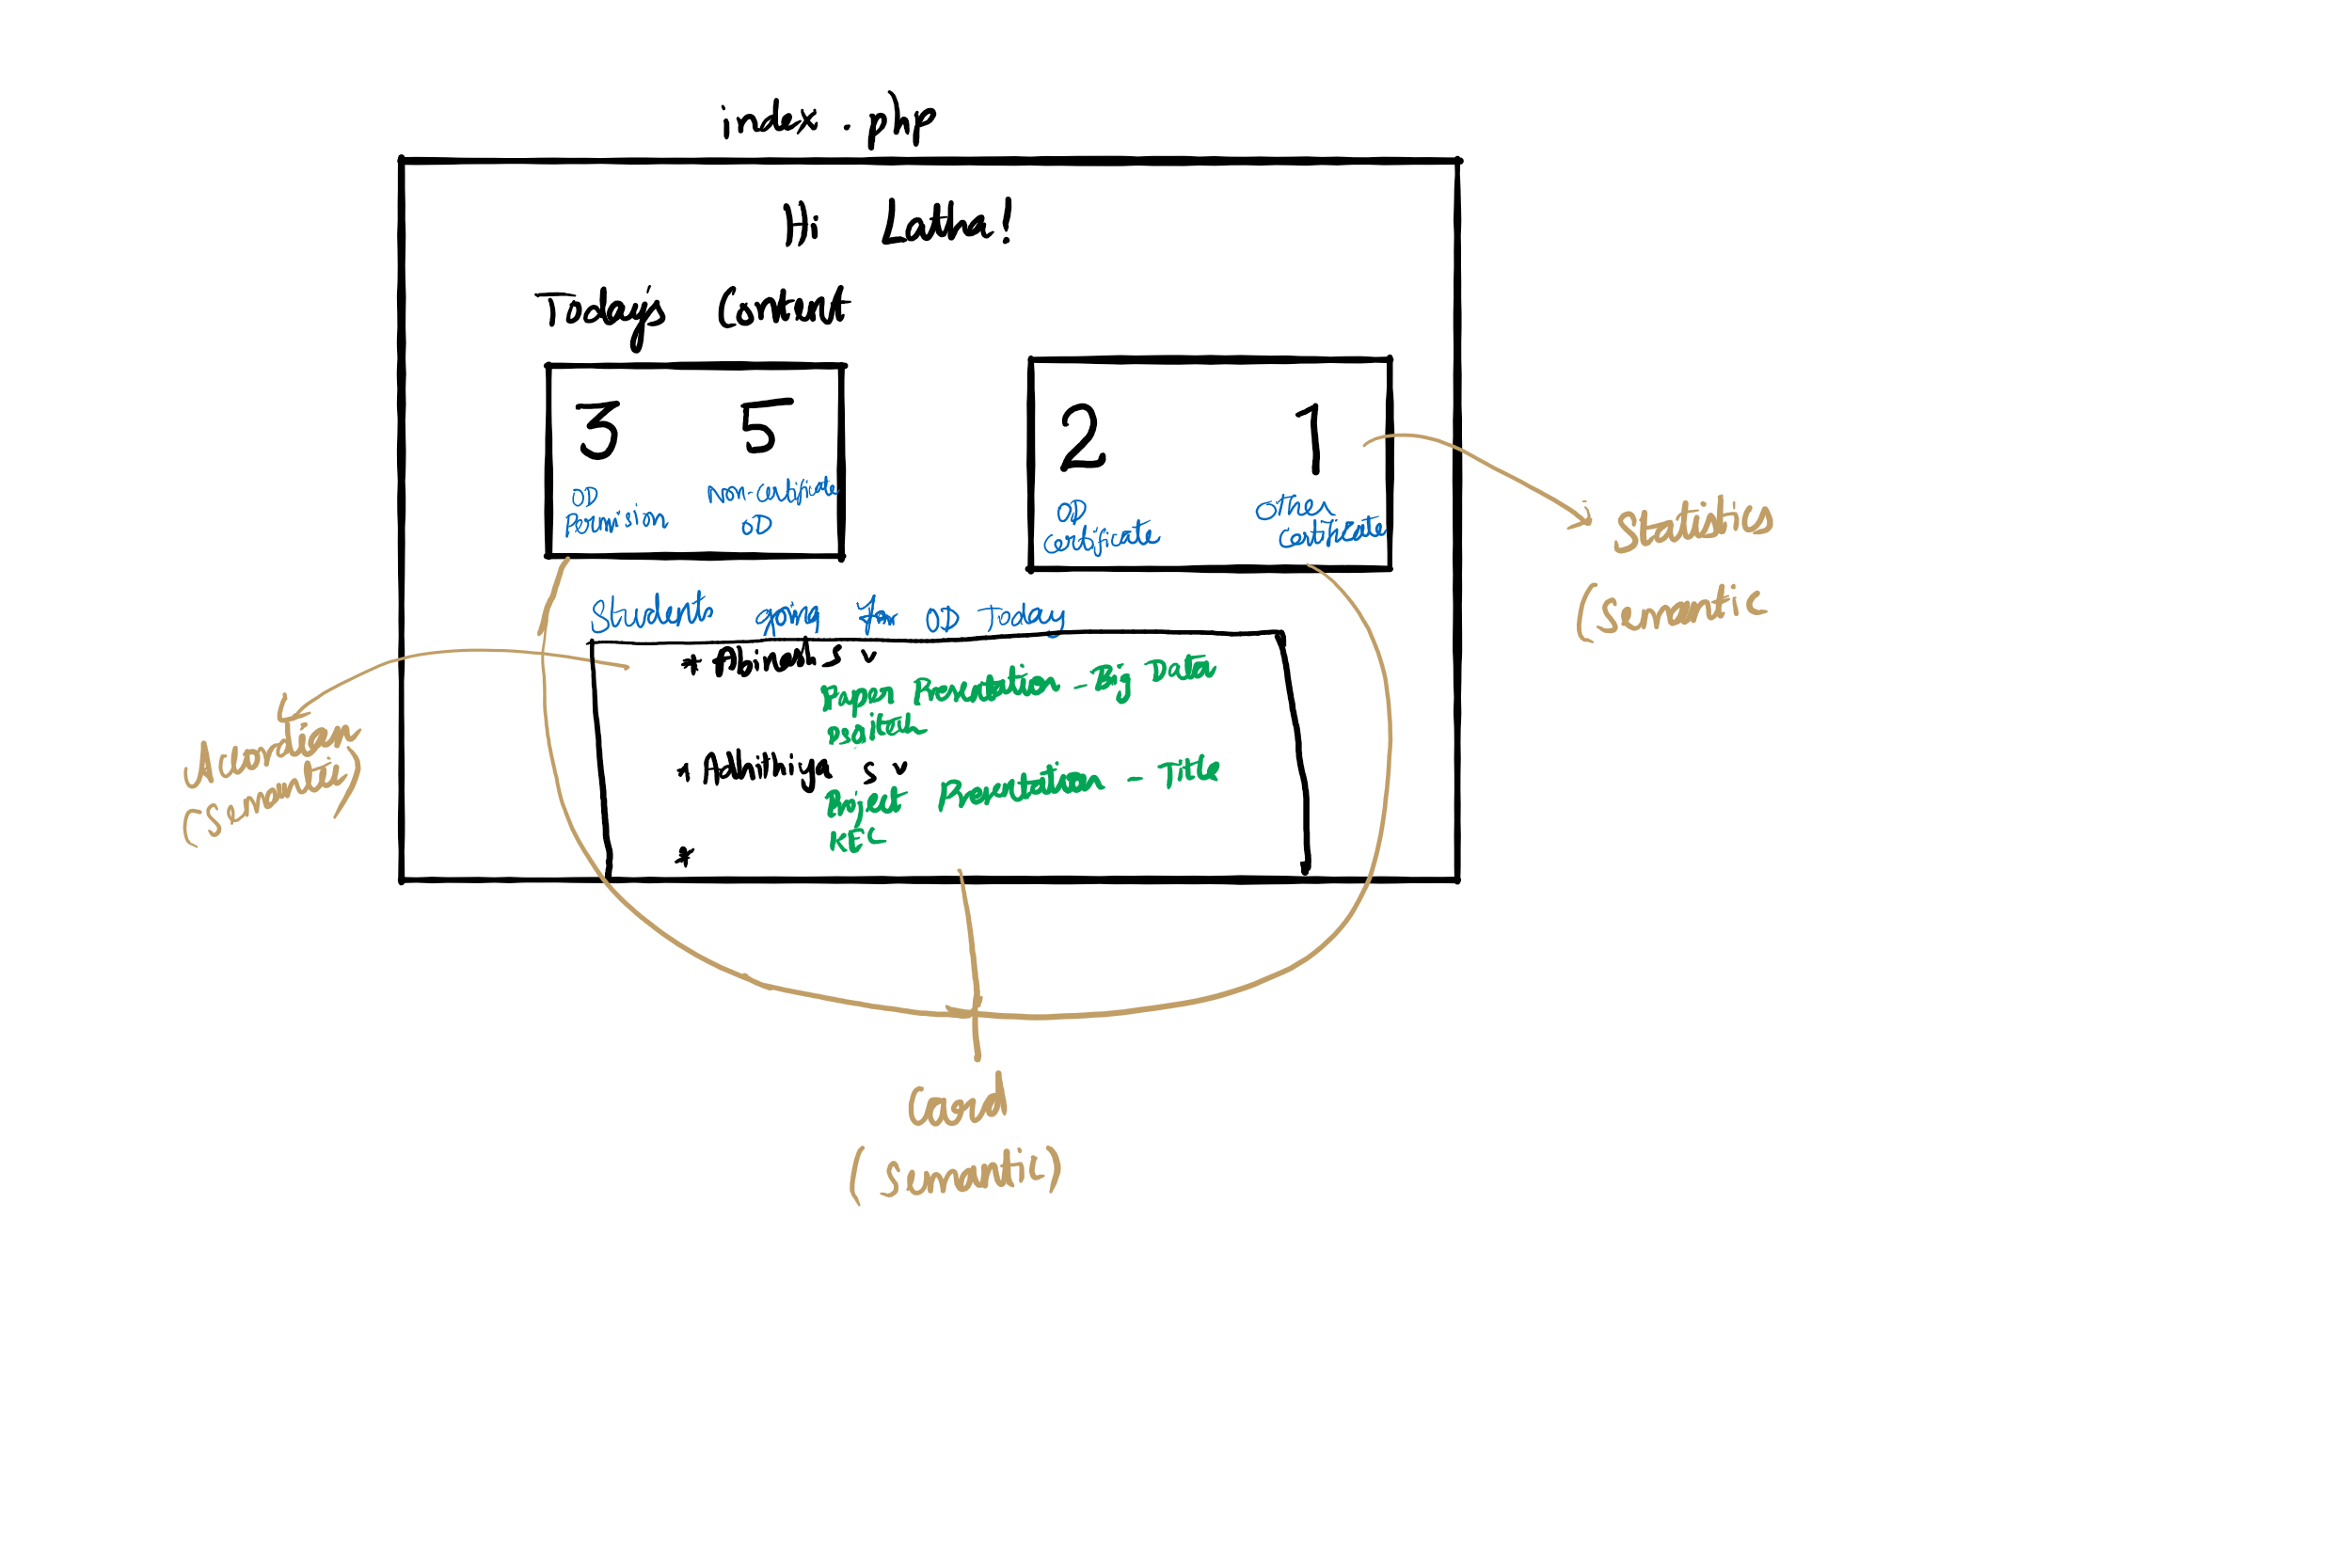 index.php
Hi Latha!
Today's Content
3 5
OD Permission
Non-Certificate OD
2 1
OD Certificate
Other Certificate
Statistics
(Semantic
Students going for OD Today
* Abinash S v
Paper Presentation - Big Data
psgitech
* Adhithiya S v
Project Presentation - Title
KEC
*
Accordian
(Semantic)
Card
(Semantic)